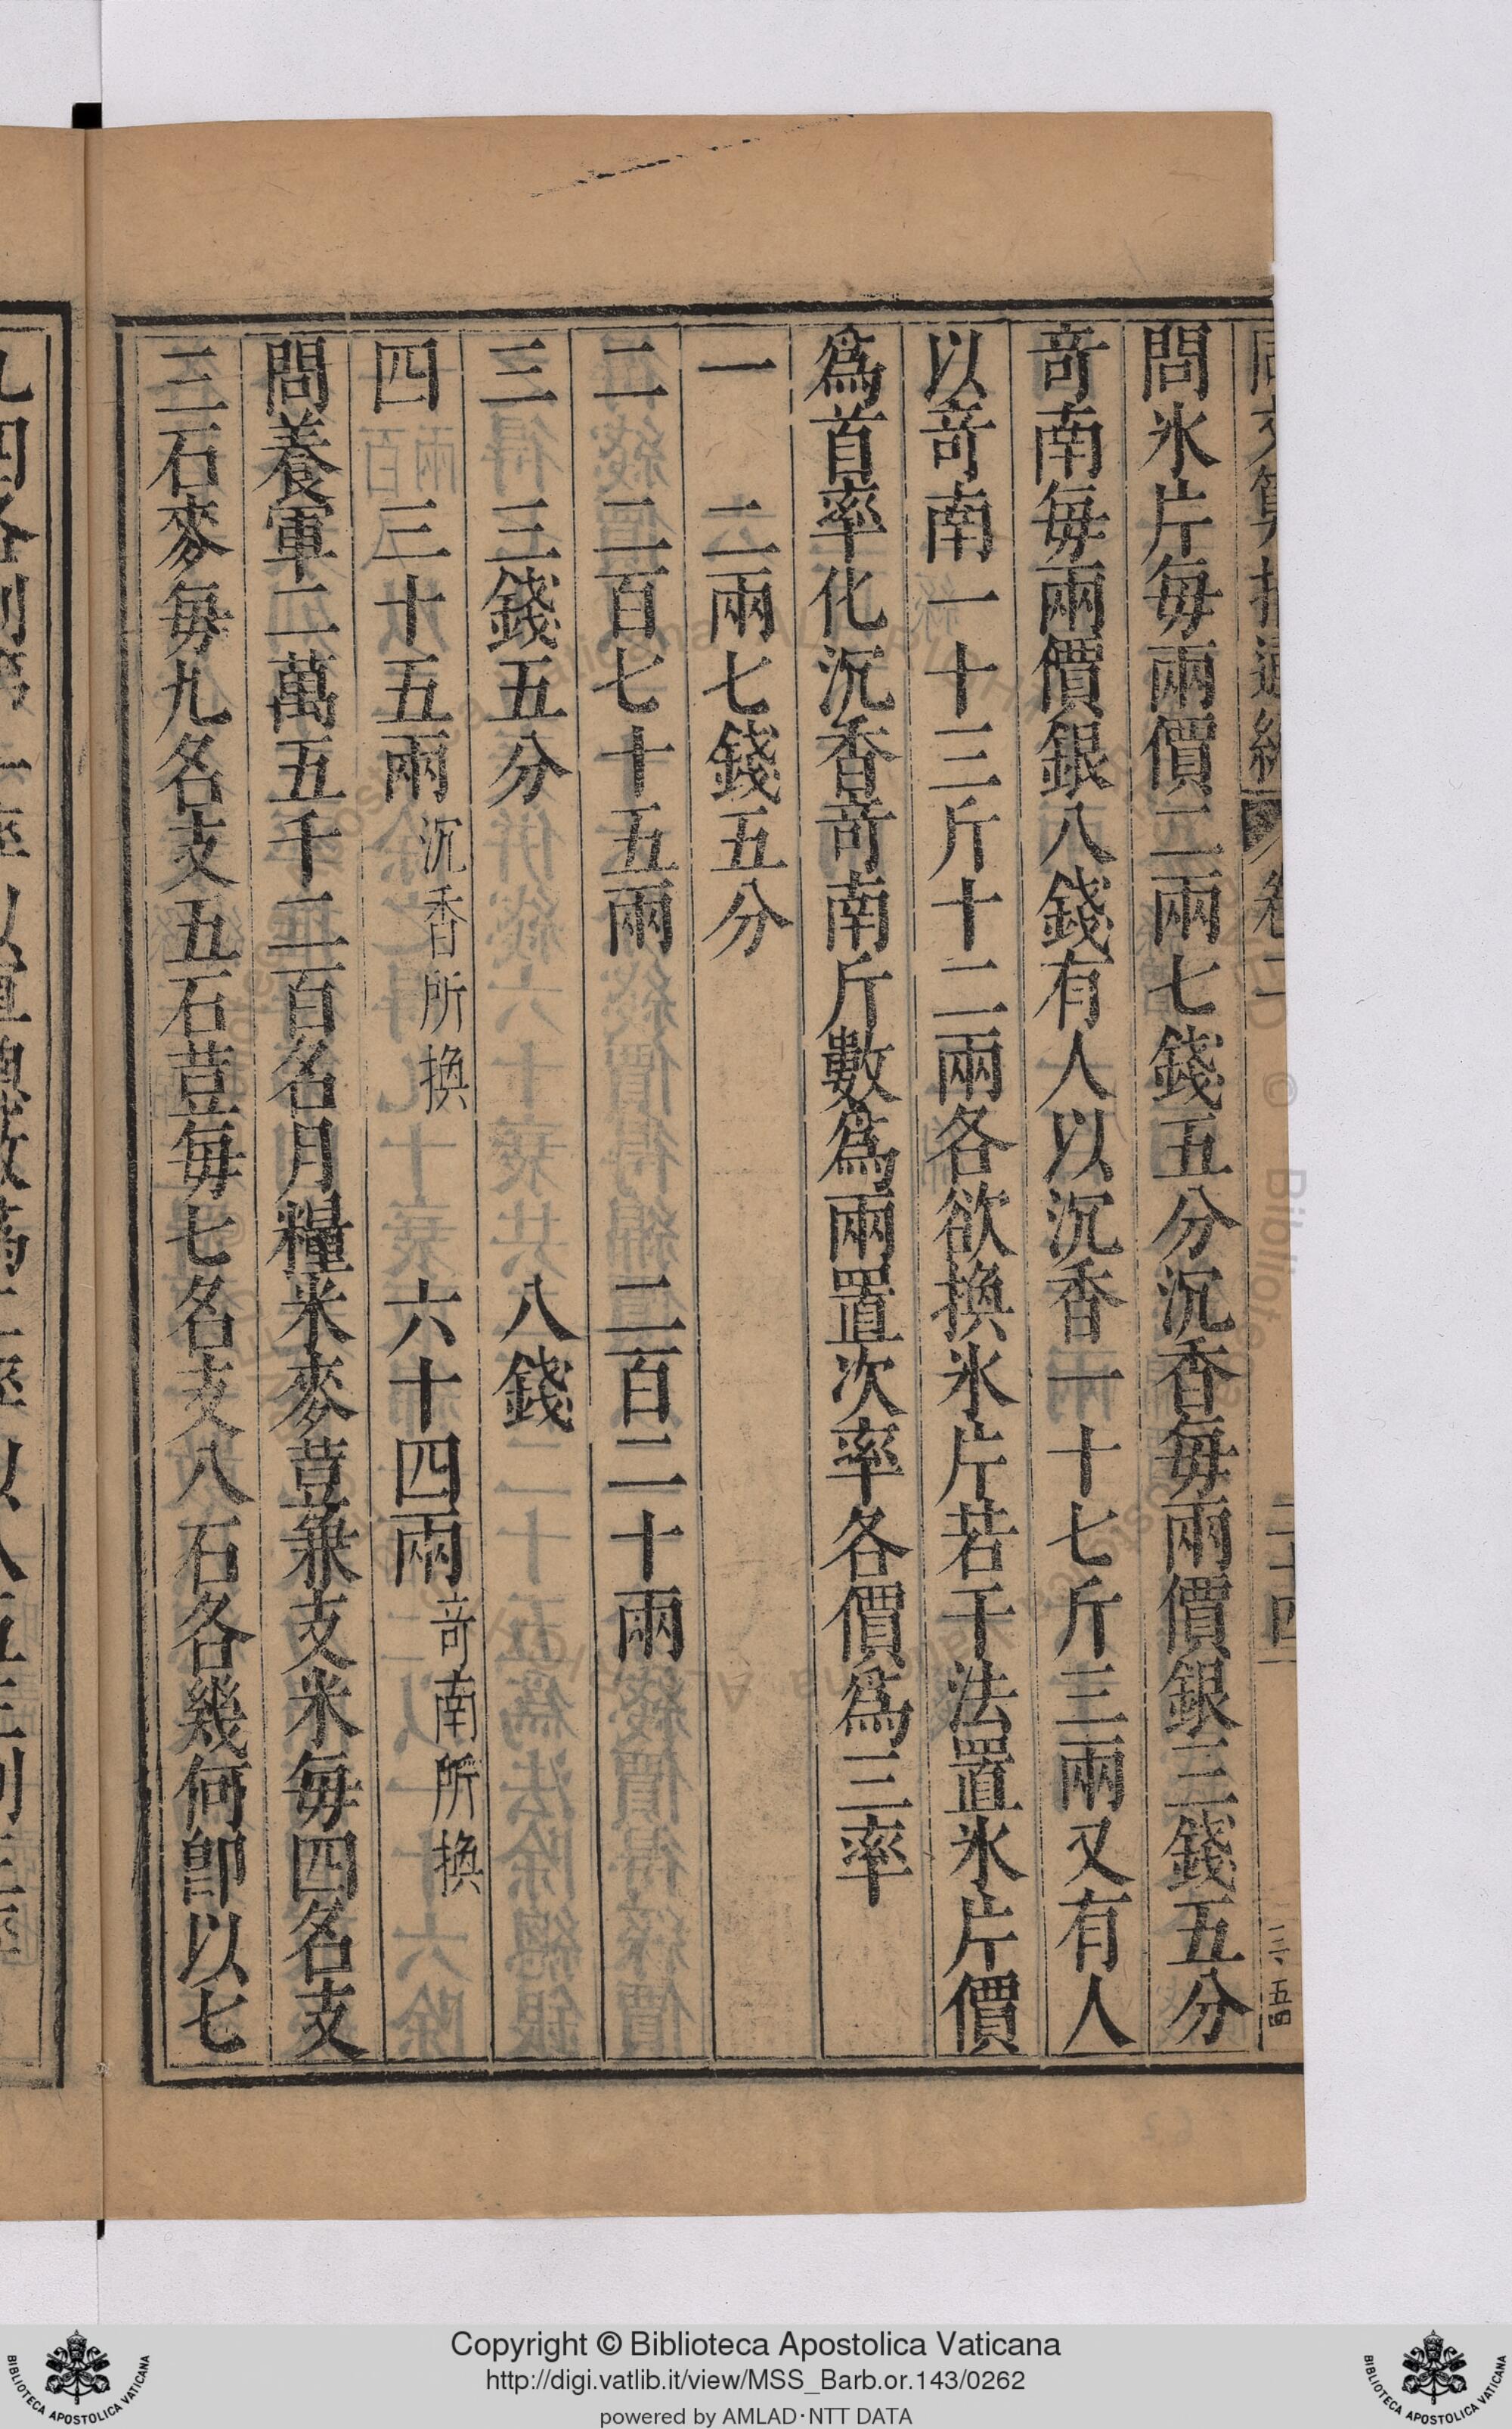 問氷片毎兩價二兩七錢五分沉香毎兩價銀三錢五分
竒南毎兩價銀八錢有人以沉香一十七斤三兩又有人
以竒南一十三斤十二兩各欲換氷片若干法置氷片價
爲首率化沉香竒南斤數爲兩置次率各價爲三率
一　二兩七錢五分
二　二百七十五兩　二百二十兩
三　三錢五分　八錢
四　三十五兩沉香所換　六十四兩竒南所換
問養軍二萬五千二百名月糧米麥荳兼支米毎四名支
三石麥毎九名支五石荳毎七名支八石各幾何卽以七
三、五四
Copyright © Biblioteca Apostolica Vaticana
http://digi.vatlib.it/view/MSS_Barb.or.143/0262
powered by AMLAD·NTT DATA
BIBLIOTECA APOSTOLICA VATICANA
BIBLIOTECA APOSTOLICA VATICANA